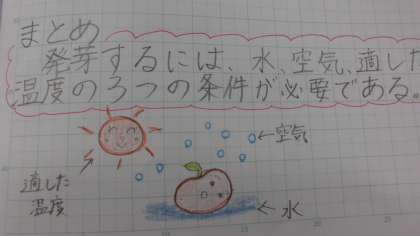 まとめ
発芽するには、水、空気、適した
温度の3つの条件が必要である。
←空気
適した
温度
←水